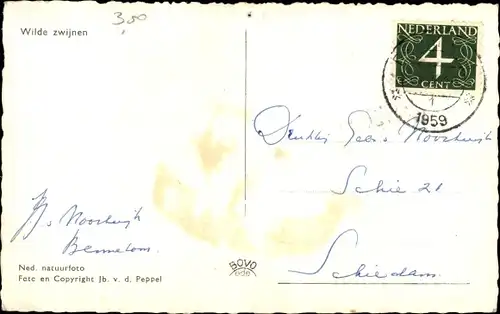 3,50
Wilde zwijnen
NEDERLAND
4
CENT
1
1959
Schie 21
Schiedam.
Noordwijk
Bennekom.
BOVO
ede
Ned. natuurfoto
Foto en Copyright Jb. v. d. Peppel